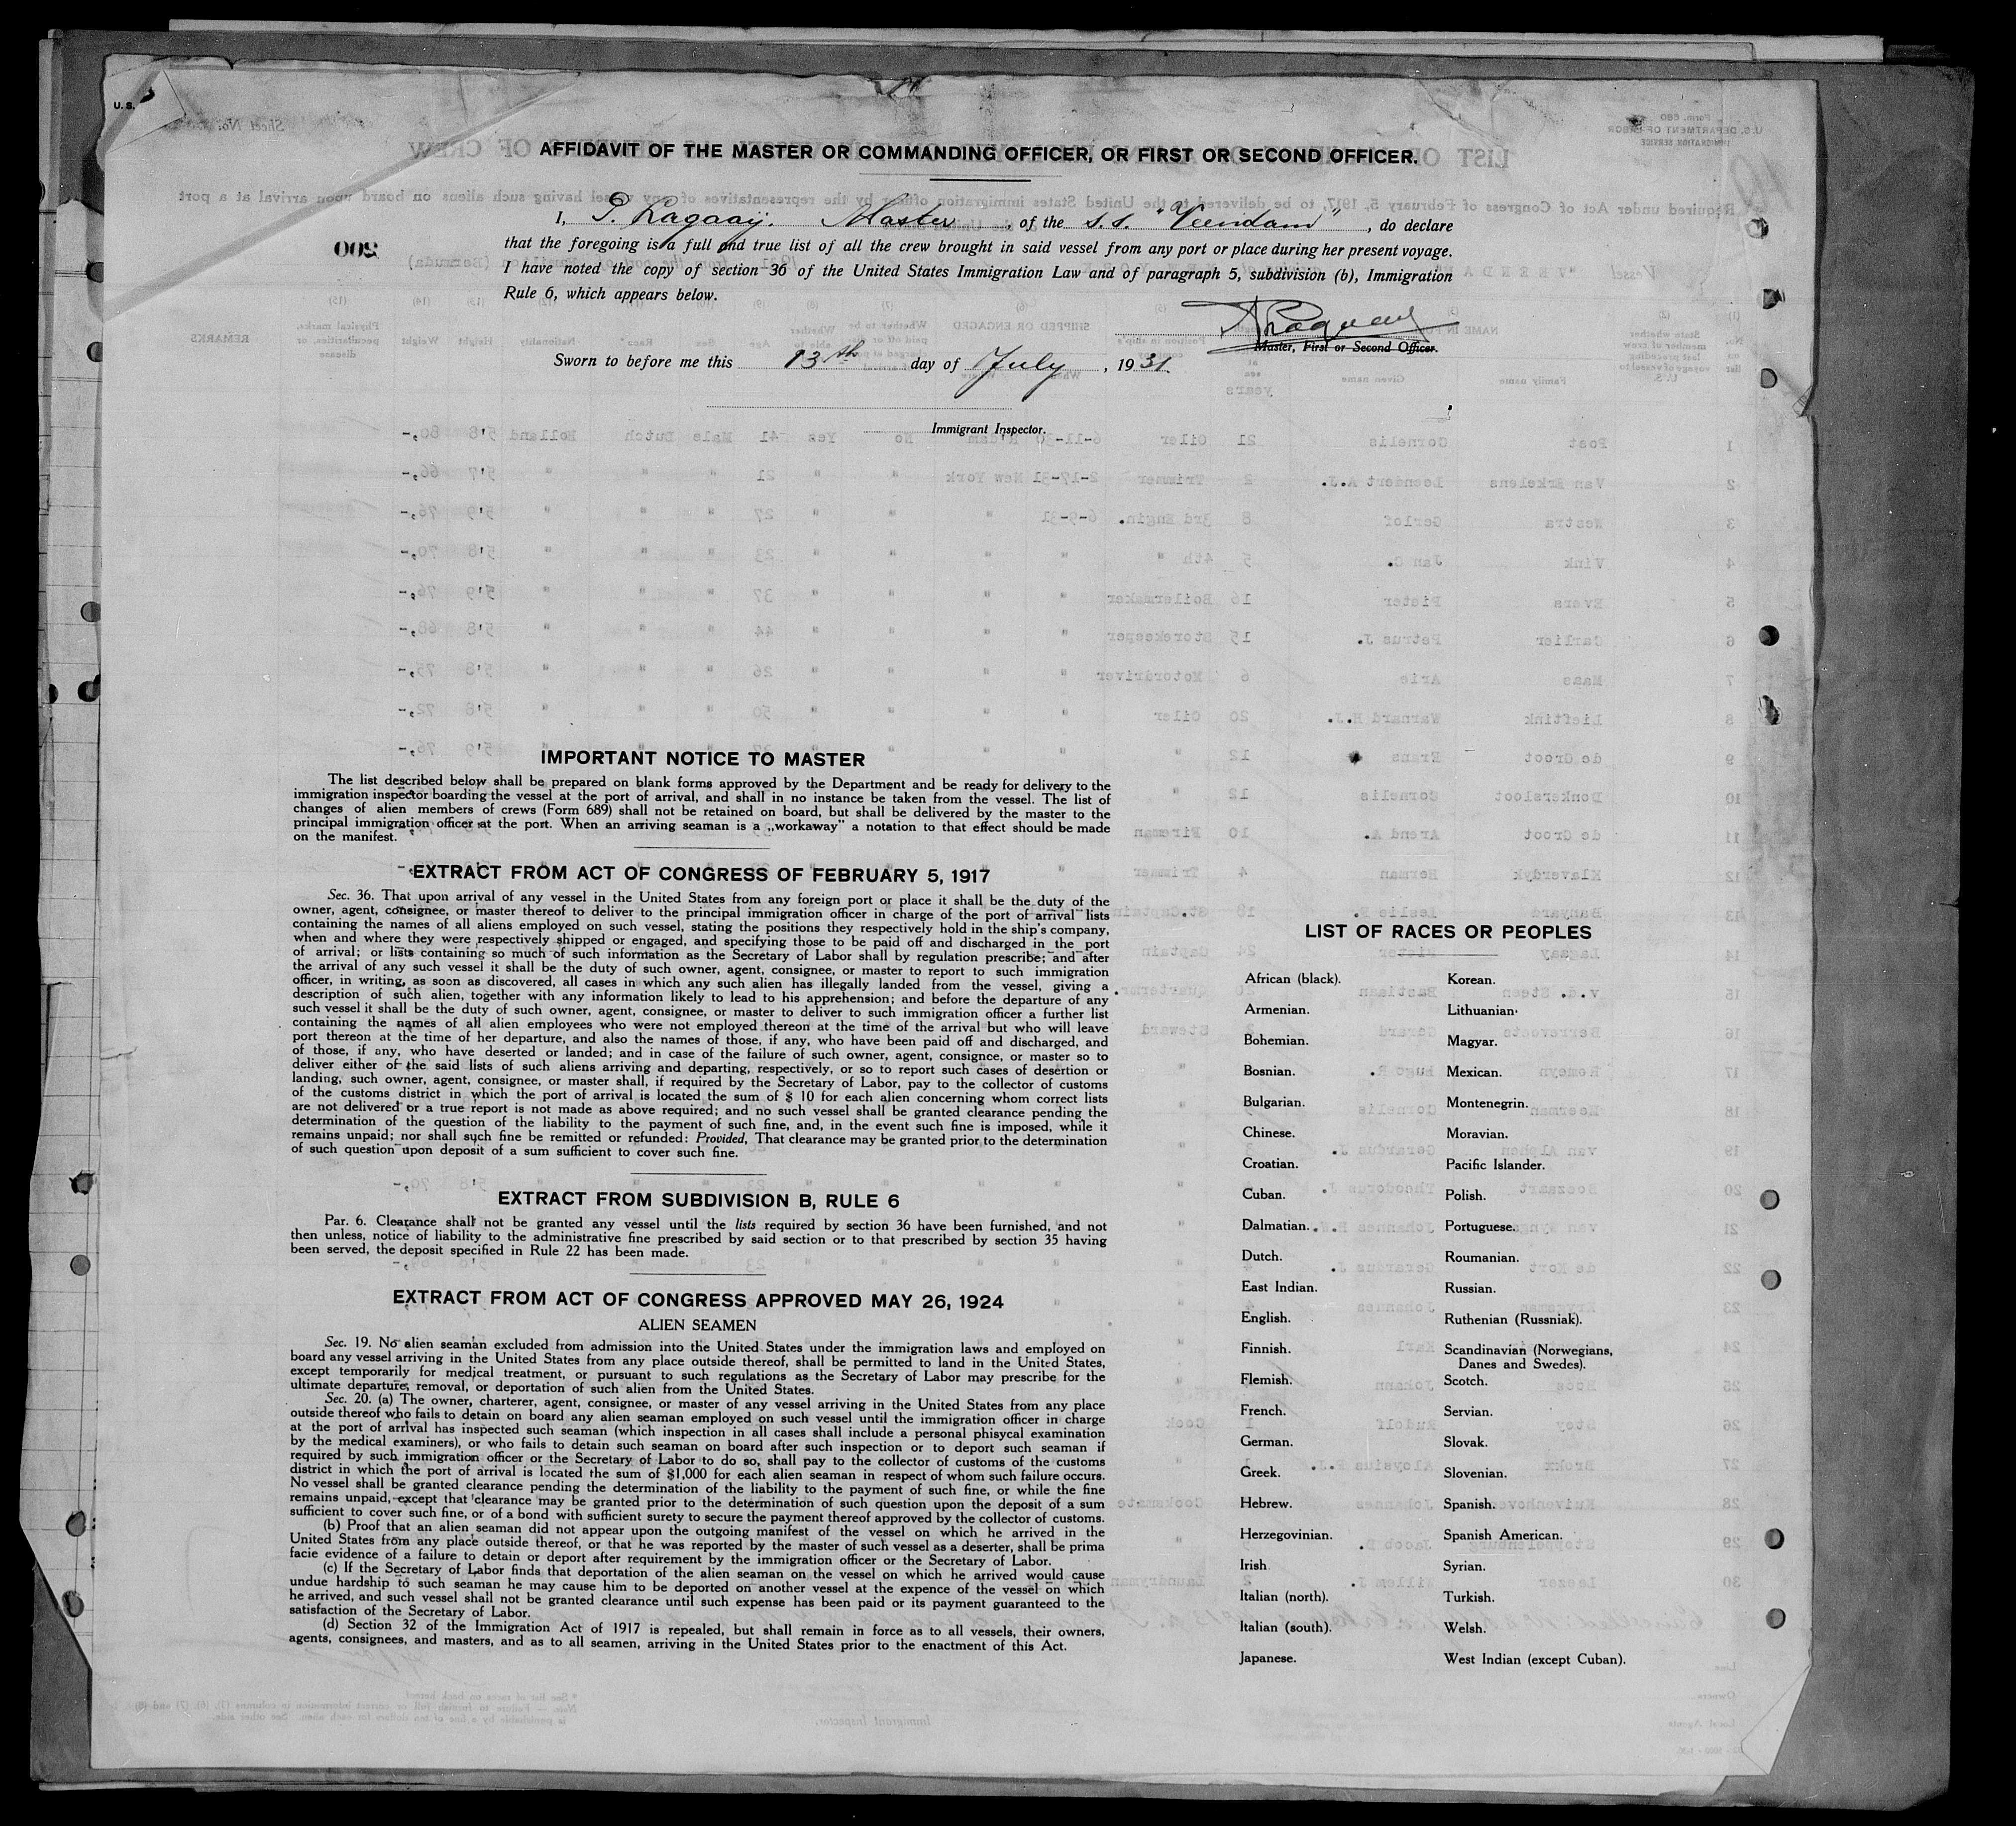 U. S.
AFFIDAVIT OF THE MASTER OR COMMANDING OFFICER, OR FIRST OR SECOND OFFICER.
I, P. Lagaaij. Master, of the s.s. "Veendam", do declare
that the foregoing is a full and true list of all the crew brought in said vessel from any port or place during her present voyage.
I have noted the copy of section 36 of the United States Immigration Law and of paragraph 5, subdivision (b), Immigration
Rule 6, which appears below.
Master, First or Second Officer.
Sworn to before me this 13th day of July, 1931.
Immigrant Inspector.
IMPORTANT NOTICE TO MASTER
The list described below shall be prepared on blank forms approved by the Department and be ready for delivery to the
immigration inspector boarding the vessel at the port of arrival, and shall in no instance be taken from the vessel. The list of
changes of alien members of crews (Form 689) shall not be retained on board, but shall be delivered by the master to the
principal immigration officer at the port. When an arriving seaman is a „workaway” a notation to that effect should be made
on the manifest.
EXTRACT FROM ACT OF CONGRESS OF FEBRUARY 5, 1917
Sec. 36. That upon arrival of any vessel in the United States from any foreign port or place it shall be the duty of the
owner, agent, consignee, or master thereof to deliver to the principal immigration officer in charge of the port of arrival lists
containing the names of all aliens employed on such vessel, stating the positions they respectively hold in the ship's company,
when and where they were respectively shipped or engaged, and specifying those to be paid off and discharged in the port
of arrival; or lists containing so much of such information as the Secretary of Labor shall by regulation prescribe; and after
the arrival of any such vessel it shall be the duty of such owner, agent, consignee, or master to report to such immigration
officer, in writing, as soon as discovered, all cases in which any such alien has illegally landed from the vessel, giving a
description of such alien, together with any information likely to lead to his apprehension; and before the departure of any
such vessel it shall be the duty of such owner, agent, consignee, or master to deliver to such immigration officer a further list
containing the names of all alien employees who were not employed thereon at the time of the arrival but who will leave
port thereon at the time of her departure, and also the names of those, if any, who have been paid off and discharged, and
of those, if any, who have deserted or landed; and in case of the failure of such owner, agent, consignee, or master so to
deliver either of the said lists of such aliens arriving and departing, respectively, or so to report such cases of desertion or
landing, such owner, agent, consignee, or master shall, if required by the Secretary of Labor, pay to the collector of customs
of the customs district in which the port of arrival is located the sum of $ 10 for each alien concerning whom correct lists
are not delivered or a true report is not made as above required; and no such vessel shall be granted clearance pending the
determination of the question of the liability to the payment of such fine, and, in the event such fine is imposed, while it
remains unpaid; nor shall such fine be remitted or refunded: Provided, That clearance may be granted prior to the determination
of such question upon deposit of a sum sufficient to cover such fine.
EXTRACT FROM SUBDIVISION B, RULE 6
Par. 6. Clearance shall not be granted any vessel until the lists required by section 36 have been furnished, and not
then unless, notice of liability to the administrative fine prescribed by said section or to that prescribed by section 35 having
been served, the deposit specified in Rule 22 has been made.
EXTRACT FROM ACT OF CONGRESS APPROVED MAY 26, 1924
ALIEN SEAMEN
Sec. 19. No alien seaman excluded from admission into the United States under the immigration laws and employed on
board any vessel arriving in the United States from any place outside thereof, shall be permitted to land in the United States,
except temporarily for medical treatment, or pursuant to such regulations as the Secretary of Labor may prescribe for the
ultimate departure, removal, or deportation of such alien from the United States.
Sec. 20. (a) The owner, charterer, agent, consignee, or master of any vessel arriving in the United States from any place
outside thereof who fails to detain on board any alien seaman employed on such vessel until the immigration officer in charge
at the port of arrival has inspected such seaman (which inspection in all cases shall include a personal phisycal examination
by the medical examiners), or who fails to detain such seaman on board after such inspection or to deport such seaman if
required by such immigration officer or the Secretary of Labor to do so, shall pay to the collector of customs of the customs
district in which the port of arrival is located the sum of $1,000 for each alien seaman in respect of whom such failure occurs.
No vessel shall be granted clearance pending the determination of the liability to the payment of such fine, or while the fine
remains unpaid, except that clearance may be granted prior to the determination of such question upon the deposit of a sum
sufficient to cover such fine, or of a bond with sufficient surety to secure the payment thereof approved by the collector of customs.
(b) Proof that an alien seaman did not appear upon the outgoing manifest of the vessel on which he arrived in the
United States from any place outside thereof, or that he was reported by the master of such vessel as a deserter, shall be prima
facie evidence of a failure to detain or deport after requirement by the immigration officer or the Secretary of Labor.
(c) If the Secretary of Labor finds that deportation of the alien seaman on the vessel on which he arrived would cause
undue hardship to such seaman he may cause him to be deported on another vessel at the expence of the vessel on which
he arrived, and such vessel shall not be granted clearance until such expense has been paid or its payment guaranteed to the
satisfaction of the Secretary of Labor.
(d) Section 32 of the Immigration Act of 1917 is repealed, but shall remain in force as to all vessels, their owners,
agents, consignees, and masters, and as to all seamen, arriving in the United States prior to the enactment of this Act.
LIST OF RACES OR PEOPLES
African (black).
Armenian.
Bohemian.
Bosnian.
Bulgarian.
Chinese.
Croatian.
Cuban.
Dalmatian.
Dutch.
East Indian.
English.
Finnish.
Flemish.
French.
German.
Greek.
Hebrew.
Herzegovinian.
Irish
Italian (north).
Italian (south).
Japanese.
Korean.
Lithuanian.
Magyar.
Mexican.
Montenegrin.
Moravian.
Pacific Islander.
Polish.
Portuguese.
Roumanian.
Russian.
Ruthenian (Russniak).
Scandinavian (Norwegians,
Danes and Swedes).
Scotch.
Servian.
Slovak.
Slovenian.
Spanish.
Spanish American.
Syrian.
Turkish.
Welsh.
West Indian (except Cuban).